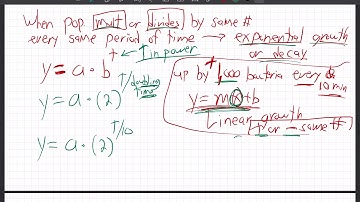 When pop. mult or divides by same #
every same period of time → exponential growth
or decay
↑ t in power
y = a · b^t
y = a · (2)^t/doubling time
y = a · (2)^t/10
up by + 1,000 bacteria every 10 min
y = mx + b
Linear growth
+ or – same #